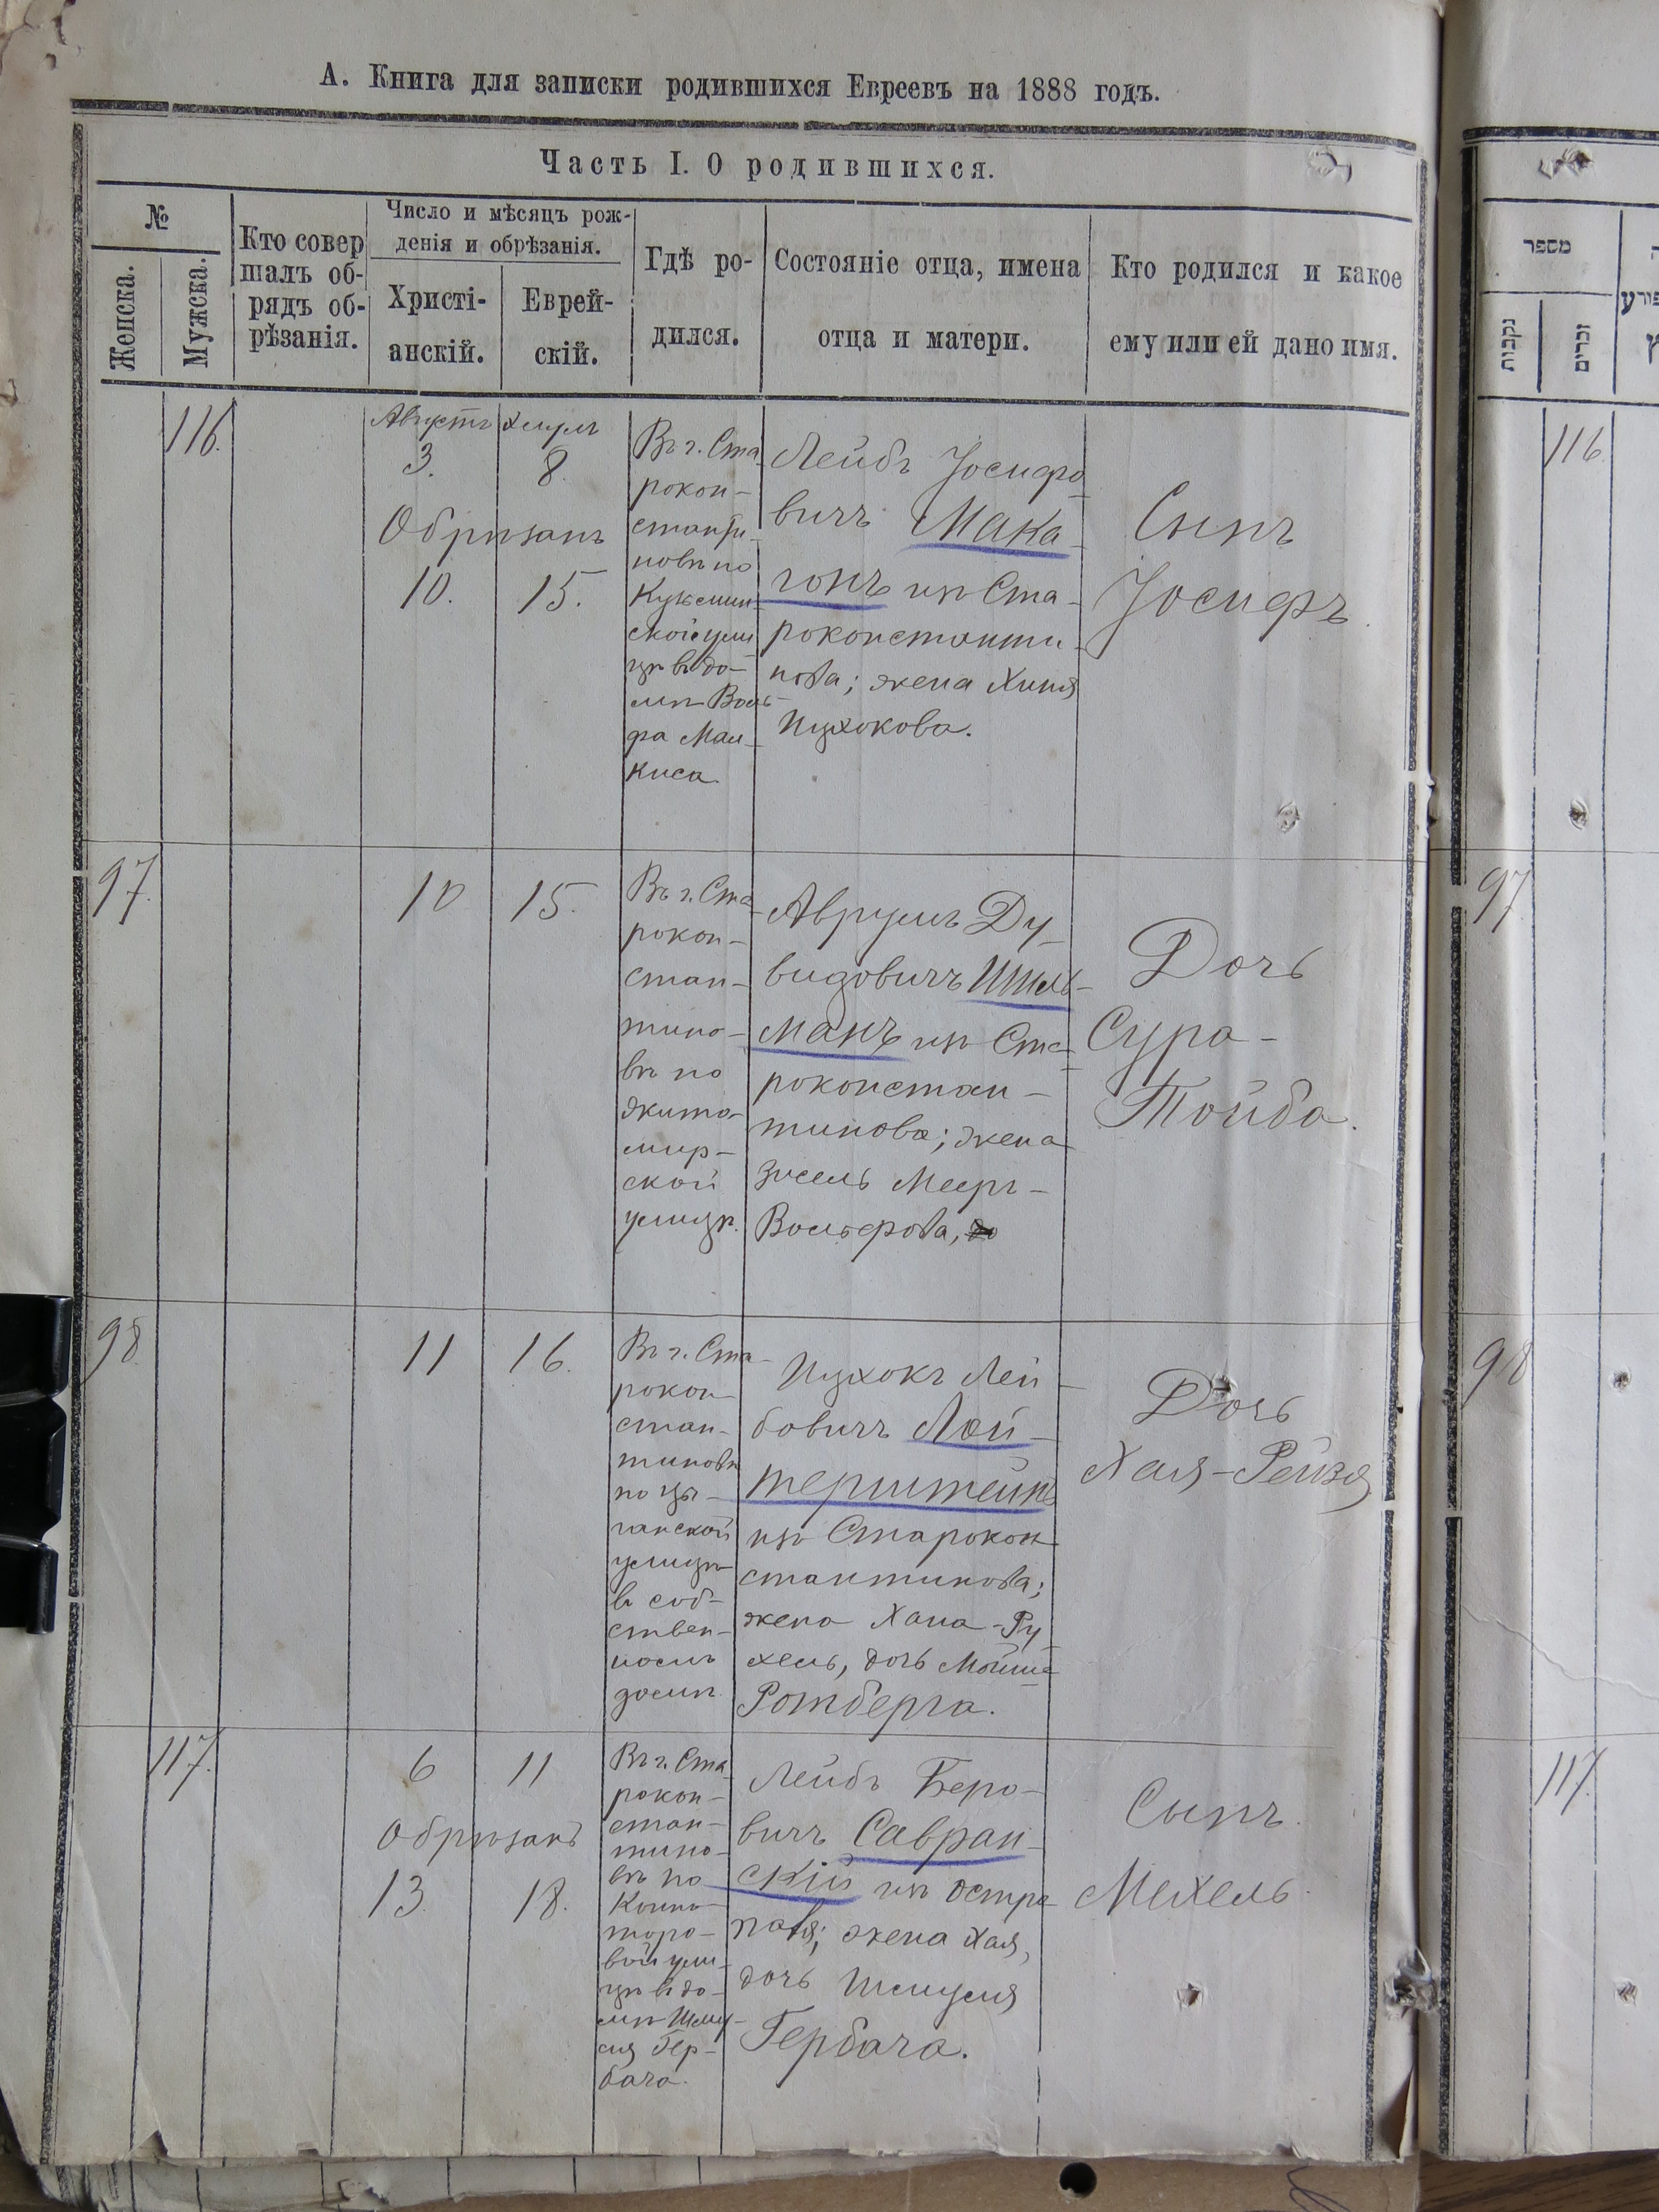 А. Книга для записки родившихся Евреевъ на 1888 годъ.
Часть I. О родившихся.
№
Женска.
Мужска.
Кто совер
шалъ об-
рядъ об-
рѣзанія.
Число и мѣсяцъ рож-
денія и обрѣзанія.
Христі-
анскій.
Еврей-
скій.
Гдѣ ро-
дился.
Состояніе отца, имена
отца и матери.
Кто родился и какое
ему или ей дано имя.
116.
Августъ
3.
8.
Обрѣзанъ
10.
15.
Въ г. Ста
рокон-
станти-
новѣ по
Кузьмин-
ской ули
цѣ въ до-
мѣ Воль-
фа Мал-
киса
Лейбъ Іосифо
вичъ Мака-
гонъ изъ Ста-
роконстанти-
нова; жена Хиня
Ицхокова.
Сынъ
Іосифъ.
97.
10
15.
Въ г. Ста
рокон-
стан-
тино-
вѣ по
жито-
мир-
ской
улицѣ.
Аврумъ Ду-
видовичъ Шиль-
манъ изъ Ста-
роконстан-
тинова; жена
Зисель Мееръ-
Вольфова,
Дочь
Сура-
Тойба.
98.
11
16.
Въ г. Ста-
рокон-
стан-
тиновѣ
по Цы-
ганской
улицѣ
въ соб-
ствен-
номъ
домѣ.
Ицхокъ Лей-
бовичъ Лой-
терштейнъ
изъ Старокон-
стантинова;
жена Хана-Ру-
хель, дочь Мойше
Ротберга.
Дочь
Хая-Рейзя
117.
6
11
Обрѣзанъ
13.
18.
Въ г. Ста
рокон-
стан-
тино-
вѣ по
Конно-
торо-
вой ули-
цѣ въ до-
мѣ Шму-
ля Гер-
бача.
Лейбъ Беро-
вичъ Савран-
скій изъ Остро-
поля; жена Хая,
дочь Шмуля
Гербача.
Сынъ.
Мехель.
מספר
נקבות
זכרים
116
97
98
117.